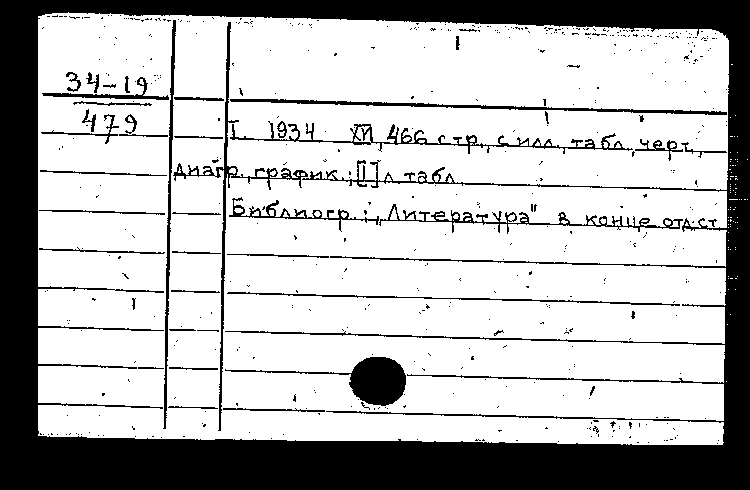 34-19
479
I. 1934 XVI, 466 стр., с илл., табл., черт.,
диагр., график.; [I] л. табл.
Библиогр.: „Литература" в конце отд. ст.